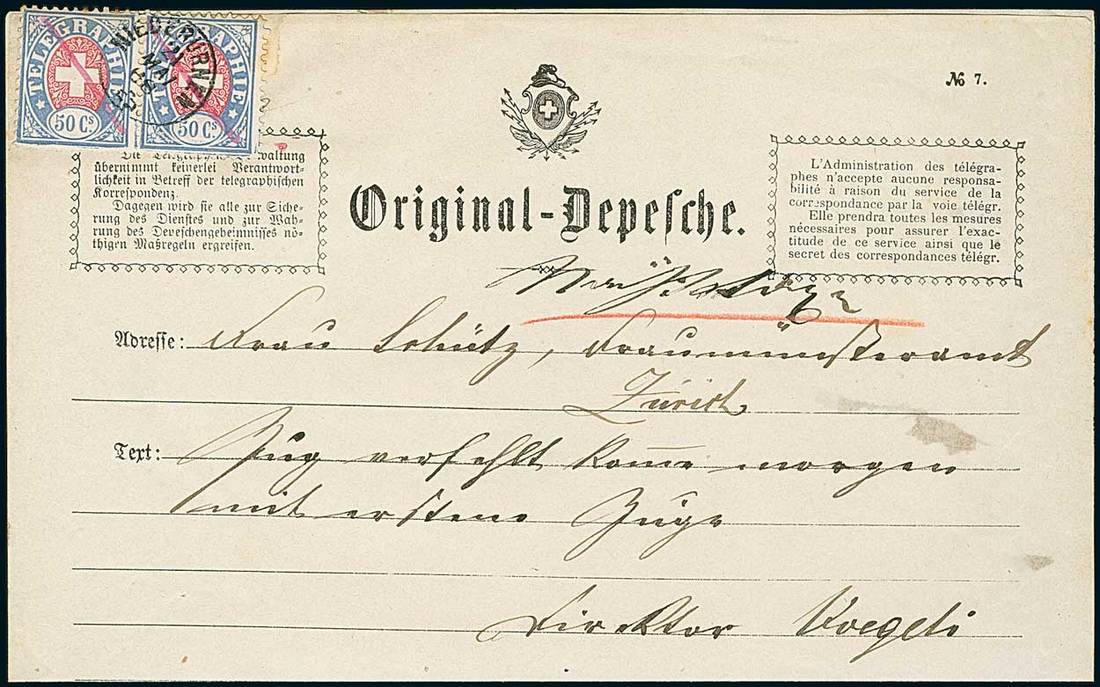 TELEGRAPHIE
50 Cs
TELEGRAPHIE
50 Cs
NIEDERURNEN
MAI
№ 7.
Die Telegraphen-Verwaltung
übernimmt keinerlei Verantwort-
lichkeit in Betreff der telegraphischen
Korrespondenz.
Dagegen wird sie alle zur Siche-
rung des Dienstes und zur Wah-
rung des Depeschengeheimnisses nö-
thigen Maßregeln ergreifen.
Original-Depesche.
L'Administration des télégra-
phes n'accepte aucune responsa-
bilité à raison du service de la
correspondance par la voie télégr.
Elle prendra toutes les mesures
nécessaires pour assurer l'exac-
titude de ce service ainsi que le
secret des correspondances télégr.
Adresse: Frau Schütz, Fraumünsteramt
Zürich
Text: Zug verfehlt kom̅e morgen
mit erstem Zuge
Direktor Voegeli